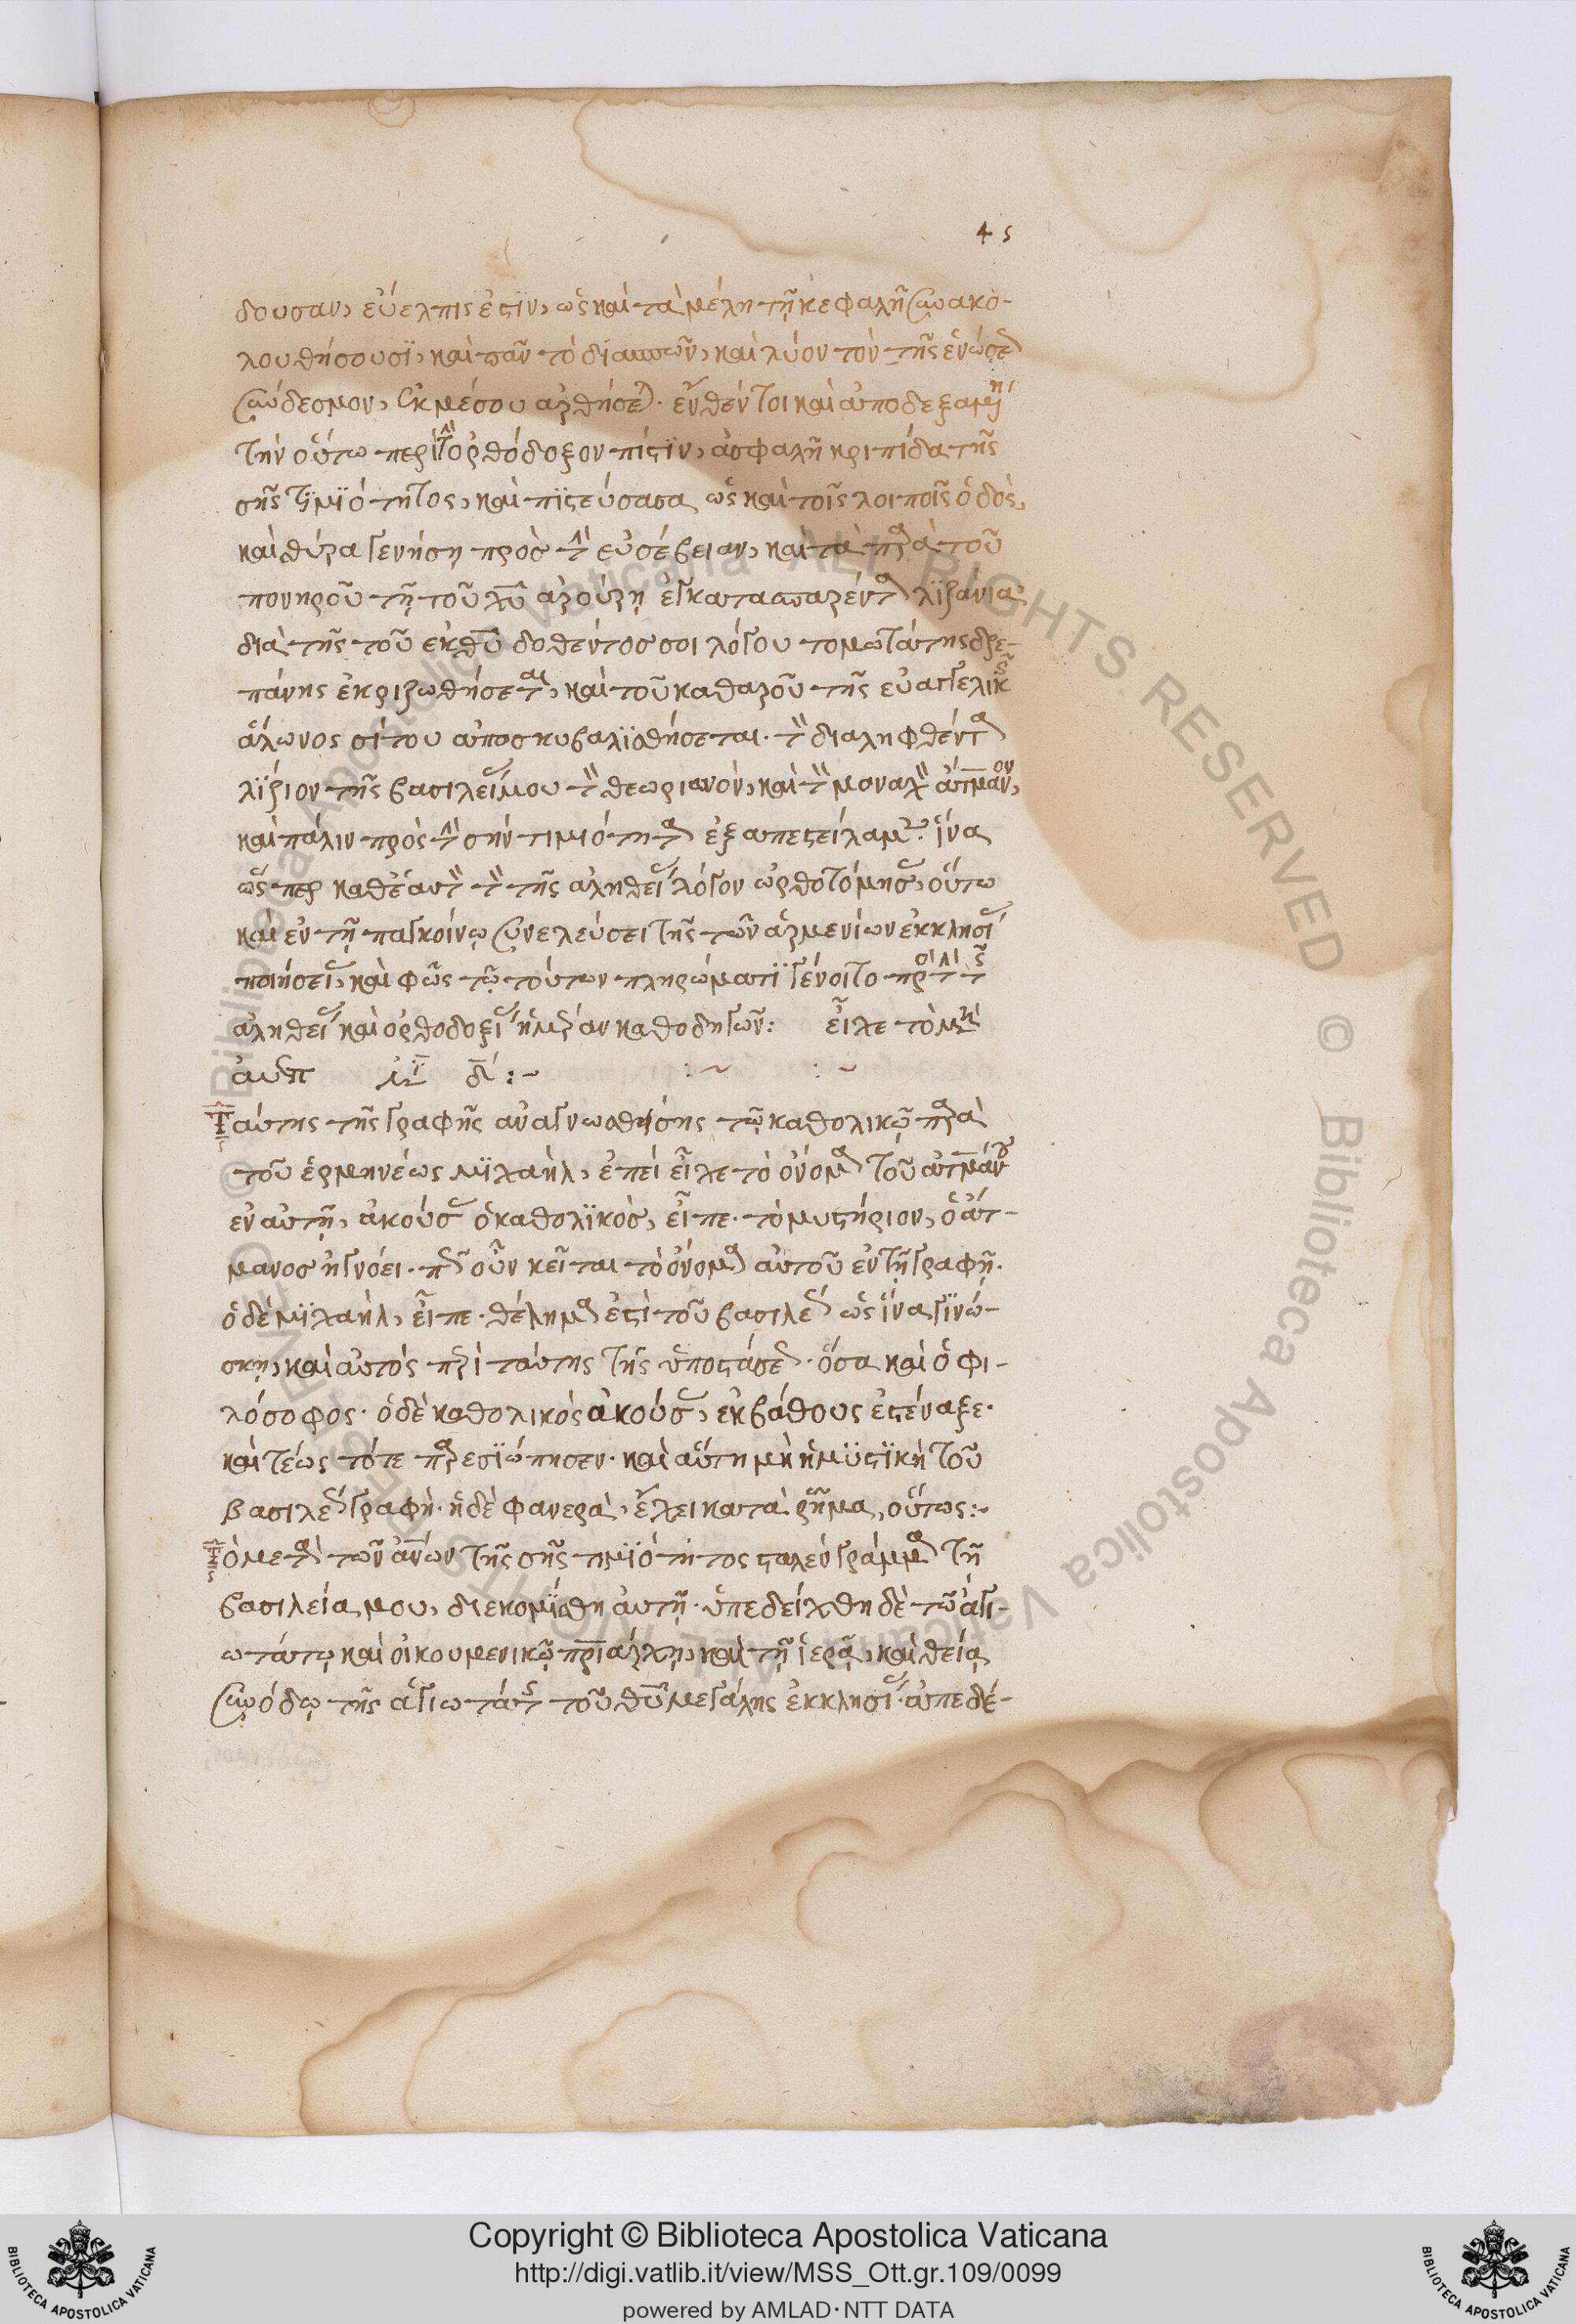 45
δουσαν, εὐελπις ἐστϊν, ὡς καὶ τὰ μέλη τῇ κεφαλῇ συνακο-
λουθήσουσϊ, καὶ πᾶν τὸ διασπῶν, καὶ λύον τὸν τῆς ἑνώσε
σύνδεσμον, ἐκ μέσου ἀρθήσε. ἐνθέν τοι καὶ ἀποδεξαμ
τὴν οὕτω περὶ τ ὀρθόδοξον πίστϊν, ἀσφαλῆ κριπίδα τῆς
σῆς τϊμϊότητος, καὶ πϊστεύσασα ὡς καὶ τοῖς λοιποῖς ὁδὸς
καὶ θύρα γενήση πρὸς τ εὐσέβειαν, καὶ τὰ πρα τοῦ
πονηροῦ τῇ τοῦ χυ ἀρούρη ἐγκατασπαρέντ λϊζάνια
διὰ τῆς τοῦ ἐκ θυ δοθέντος σοι λόγου τομωτάτης δρε-
πάνης ἐκριζωθήσετ, καὶ τοῦ καθαροῦ τῆς εὐαγγελικ
ἅλωνος σίτου ἀποσκυβαλϊσθήσεται. τ διαληφθέντ
λϊζιον τῆς βασιλεί μου τ θεωριανὸν, καὶ τ μοναχ ἀτμαν,
καὶ πάλιν πρὸς τ σὴν τιμιότητ ἐξαπεστείλαμ. ἵνα
ὥσπερ καθ ἑαυτ τ τῆς ἀληθεί λόγον ὠρθοτόμησ, οὕτω
καὶ ἐν τῇ παγκοίνῳ συνελεύσει τῆς τῶν ἀρμενίων ἐκκλησί
ποιήσεί, καὶ φῶς τῷ τούτων πληρώματϊ γένοιτο πρ τ τ
ἀληθεί καὶ ὀρθοδοξί ἡμέραν καθοδηγῶν: εἶχε τὸ μη
ἀυπ ἰϊ δι :~ :~ :~
Ταύτης τῆς γραφῆς ἀναγνωσθείσης τῷ καθολικῷ πρα
τοῦ ἑρμηνέως μϊχαὴλ, ἐπεὶ εἶχε τὸ ὄνομ τοῦ ἀτμάν
ἐν αὐτῇ, ἀκούσ ὁ καθολϊκὸς, εἶπε. τὸ μυστήριον, ὁ ἀτ-
μανος ἠγνόει. π οὖν κεῖται τὸ ὄνομ αὐτοῦ ἐν τῇ γραφῇ.
ὁ δὲ μϊχαὴλ, εἶπε. θέλημ ἐστὶ τοῦ βασιλέ ὡς ἵνα γϊνώ-
σκη, καὶ αὐτὸς περὶ ταύτης τῆς ὑποστάσε. ὅσα καὶ ὁ φι-
λόσοφος. ὁ δὲ καθολικὸς ἀκούσ, ἐκ βάθους ἐστέναξε.
καὶ τέως τότε πρεσϊώπησεν. καὶ αὕτη μὴ ἡ μϋστϊκὴ τοῦ
βασιλέ γραφὴ. ἡ δὲ φανερὰ, ἔχει κατὰ ῥῆμα, οὕτως:~
Τὸ μετ τῶν ἀνων τῆς σῆς τιμϊότητος σταλὲν γράμμ τῇ
βασιλεία μου, διεκομϊσθη αὐτῇ. ὑπεδείχθη δὲ τῷ ἁγι-
ωτάτῳ καὶ οἰκουμενικῷ πριάρχῃ, καὶ τῇ ἱερᾷ, καὶ θείᾳ
συνόδῳ τῆς ἁγιωτάτ τοῦ θυ μεγάλης ἐκκλησί. ἀπεδέ-
Copyright © Biblioteca Apostolica Vaticana
http://digi.vatlib.it/view/MSS_Ott.gr.109/0099
powered by AMLAD·NTT DATA